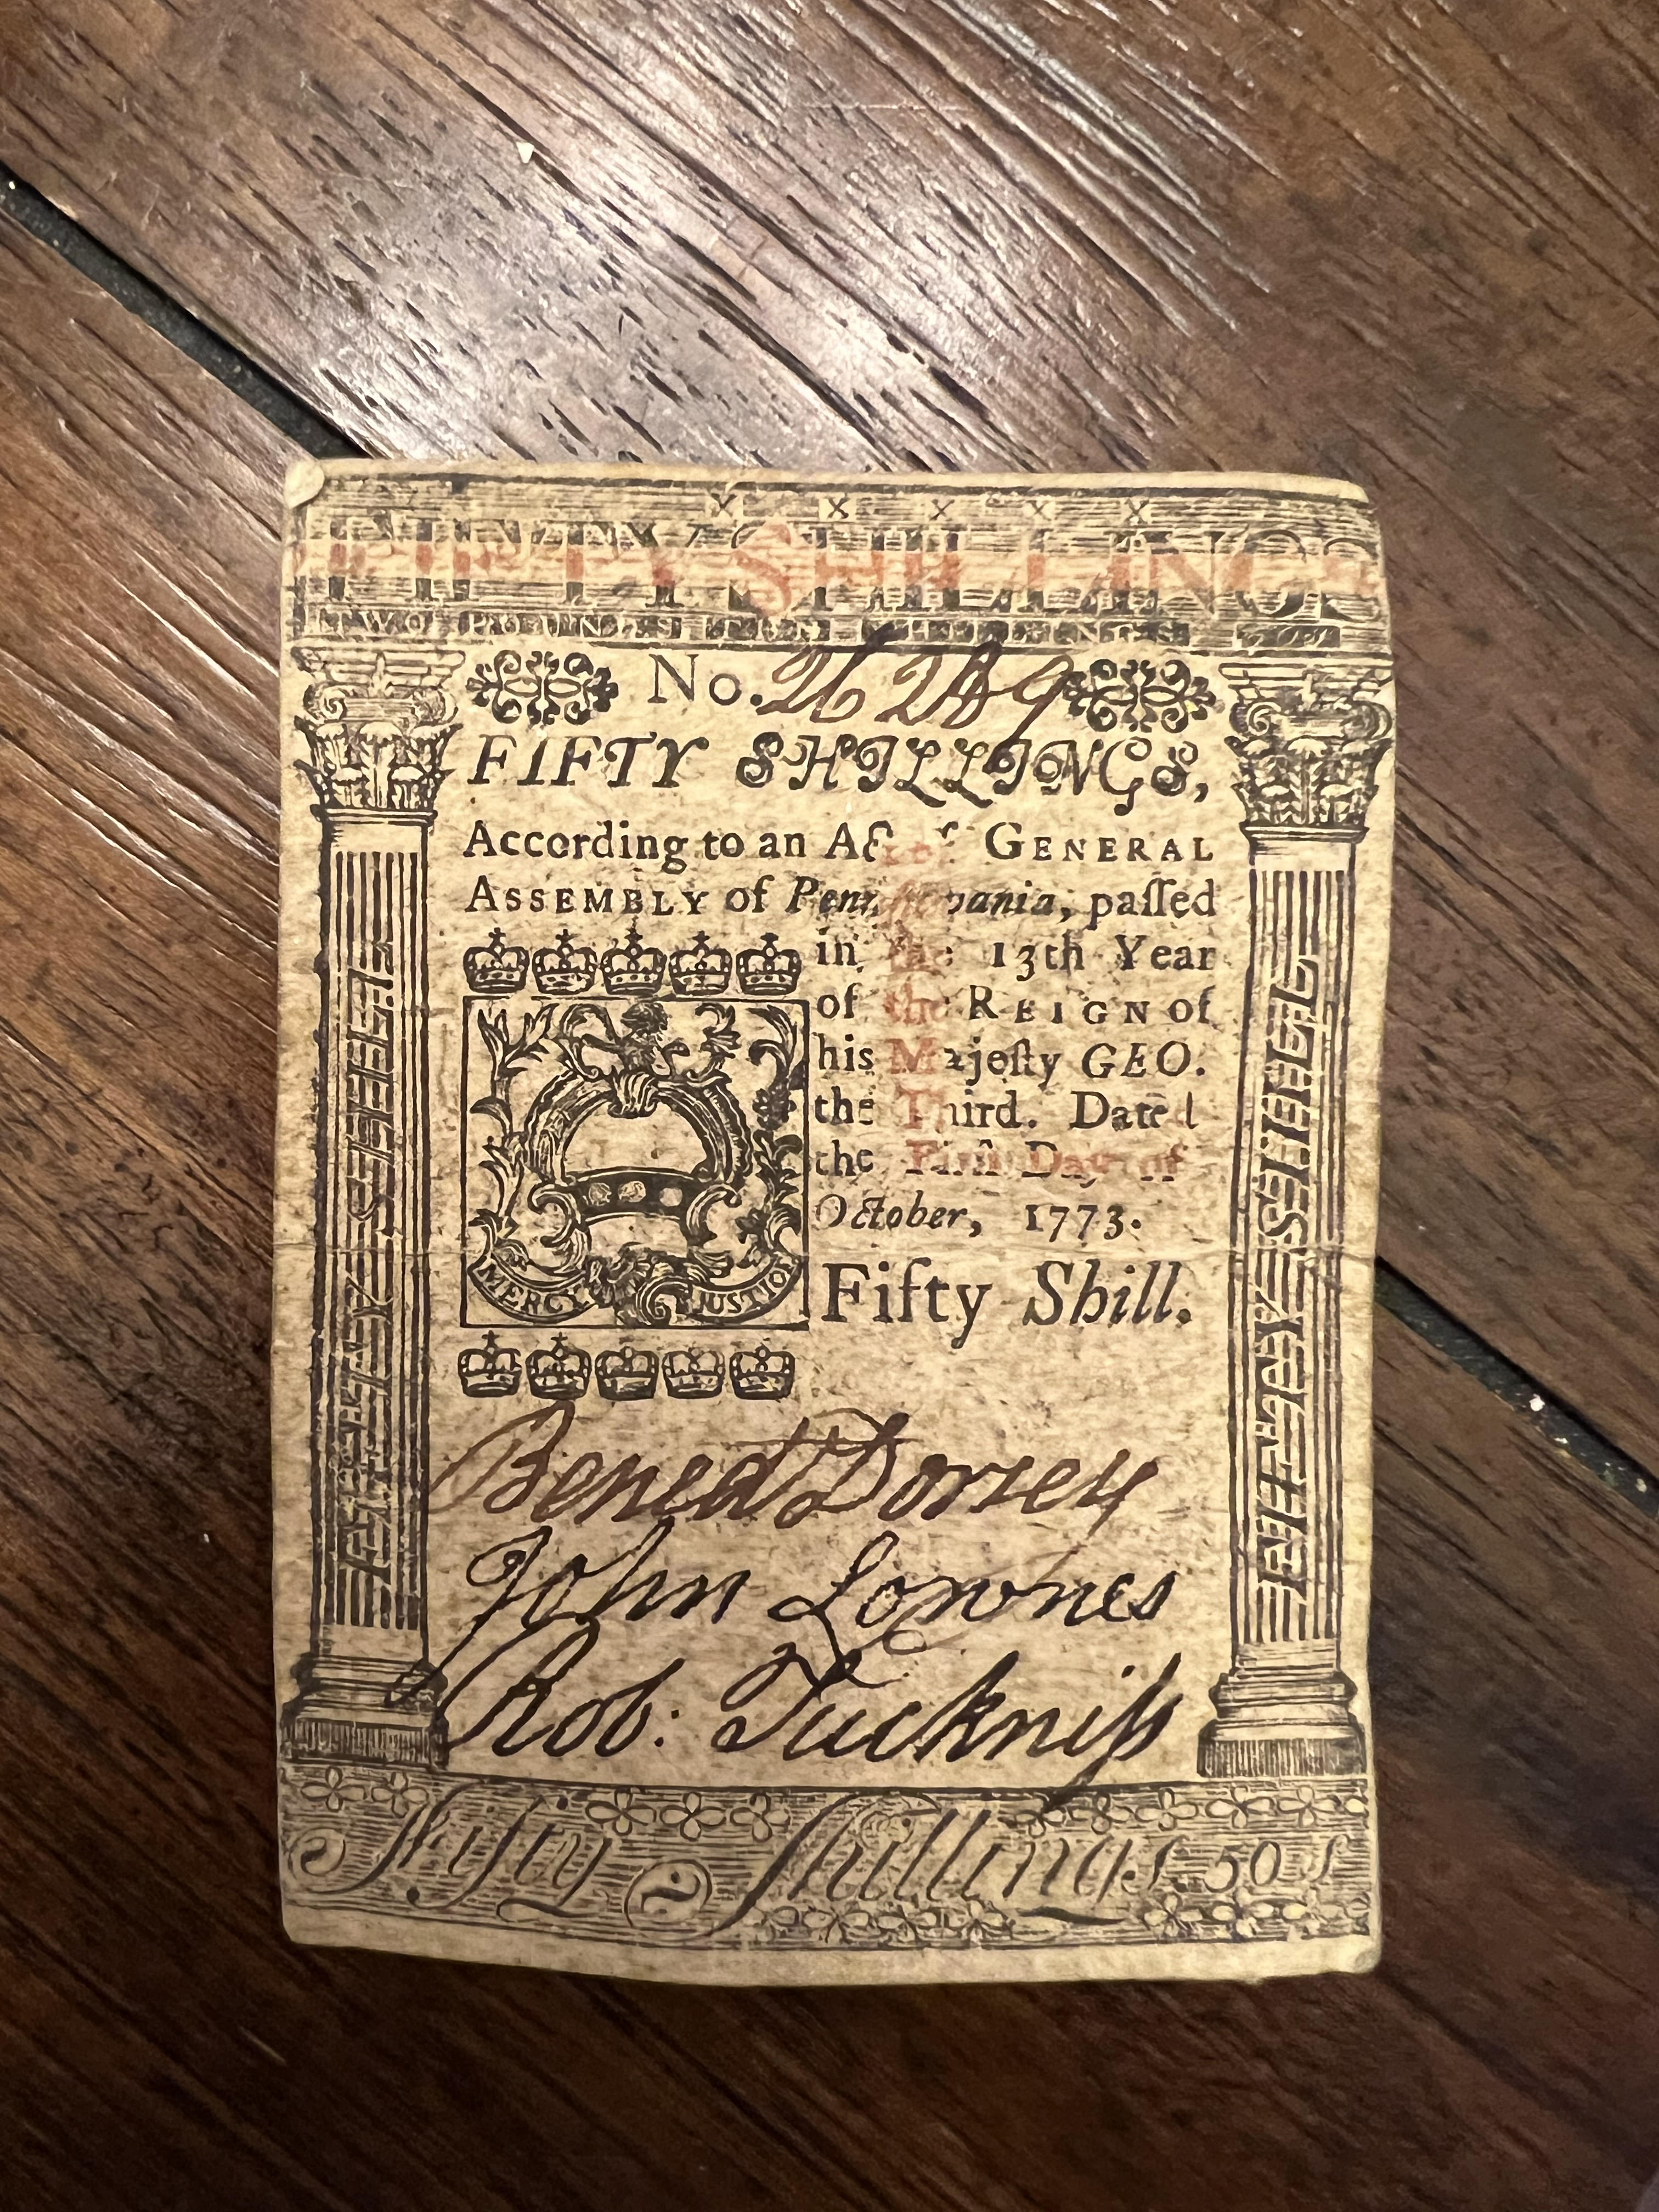 x x x x x
FIFTY SHILLINGS
No.
FIFTY SHILLINGS,
According to an Act of GENERAL
ASSEMBLY of Pennsylvania, paſſed
in the 13th Year
of the REIGN of
his Majeſty GEO.
the Third. Dated
the Firſt Day of
October, 1773.
Fifty Shill.
MERCY JUSTICE
FIFTY SHILL
FIFTY SHILL
Bened Dorsey
John Lownes
Rob: Tuckniſs
Fifty Shillings. 50 s